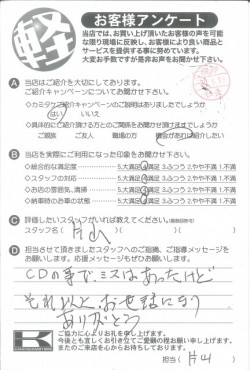 軽
お客様アンケート
当店では、お買い上げ頂いたお客様の声を可能な限り現場に反映し、お客様により良い商品とサービスを提供する事に努めています。
大変お手数ですが是非お声をお聞かせ下さい。
A 当店はご紹介を大切にしております。
ご紹介キャンペーンについてお聞かせ下さい。
はい いいえ
ご親族 ご友人 職場の方 機会があれば紹介したい
B 当店を実際にご利用になった印象をお聞かせ下さい。
◇総合的な満足度 5.大満足 4.満足 3.ふつう 2.やや不満 1.不満
◇スタッフの対応 5.大満足 4.満足 3.ふつう 2.やや不満 1.不満
◇お店の雰囲気、清掃 5.大満足 4.満足 3.ふつう 2.やや不満 1.不満
◇納車時のお車の状態 5.大満足 4.満足 3.ふつう 2.やや不満 1.不満
C 評価したいスタッフがいれば教えてください。
スタッフ名( 片山 )
D 担当させて頂きましたスタッフへのご指摘、ご指導メッセージをお願いします。応援メッセージもぜひお願いします。
CDの事で、ミスはあったけど
それ以外お世話になり
ありがとう
K
ご協力に心よりお礼を申し上げます。
今後とも宜しくお引き立てご愛顧の程お願い申し上げます。
またのご来店を心からお待ちしております。
担当( 片山 )